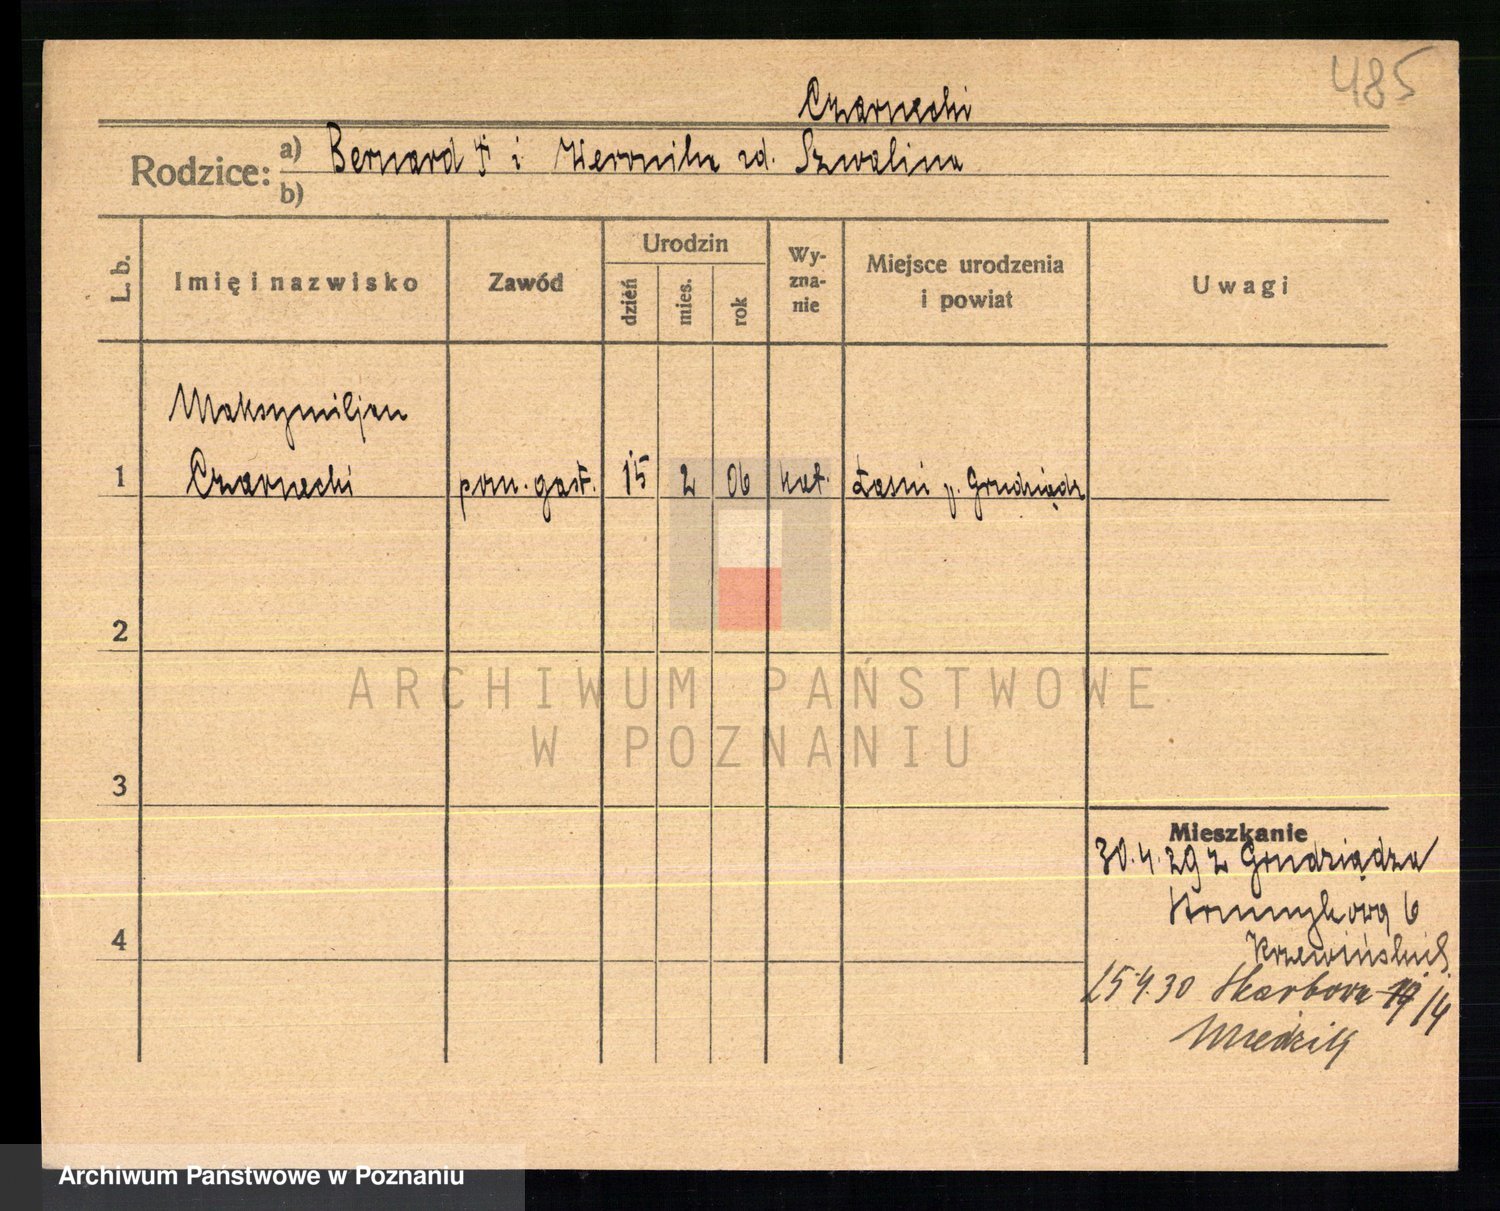 485
Czarnecki
Rodzice: a) Bernard † i Weronika zd. Szwalina
b)
L. b.
Imię i nazwisko
Zawód
Urodzin
dzień
mies.
rok
Wy-
zna-
nie
Miejsce urodzenia
i powiat
Uwagi
Maksymiljan
1 Czarnecki pom. gast. 15 2 06 kat. Łasin p. Grudziądz
2
ARCHIWUM PAŃSTWOWE
W POZNANIU
3
Mieszkanie
30.4.29 z Grudziądza
6
4
15.4.30 Skarbowa 14
Archiwum Państwowe w Poznaniu